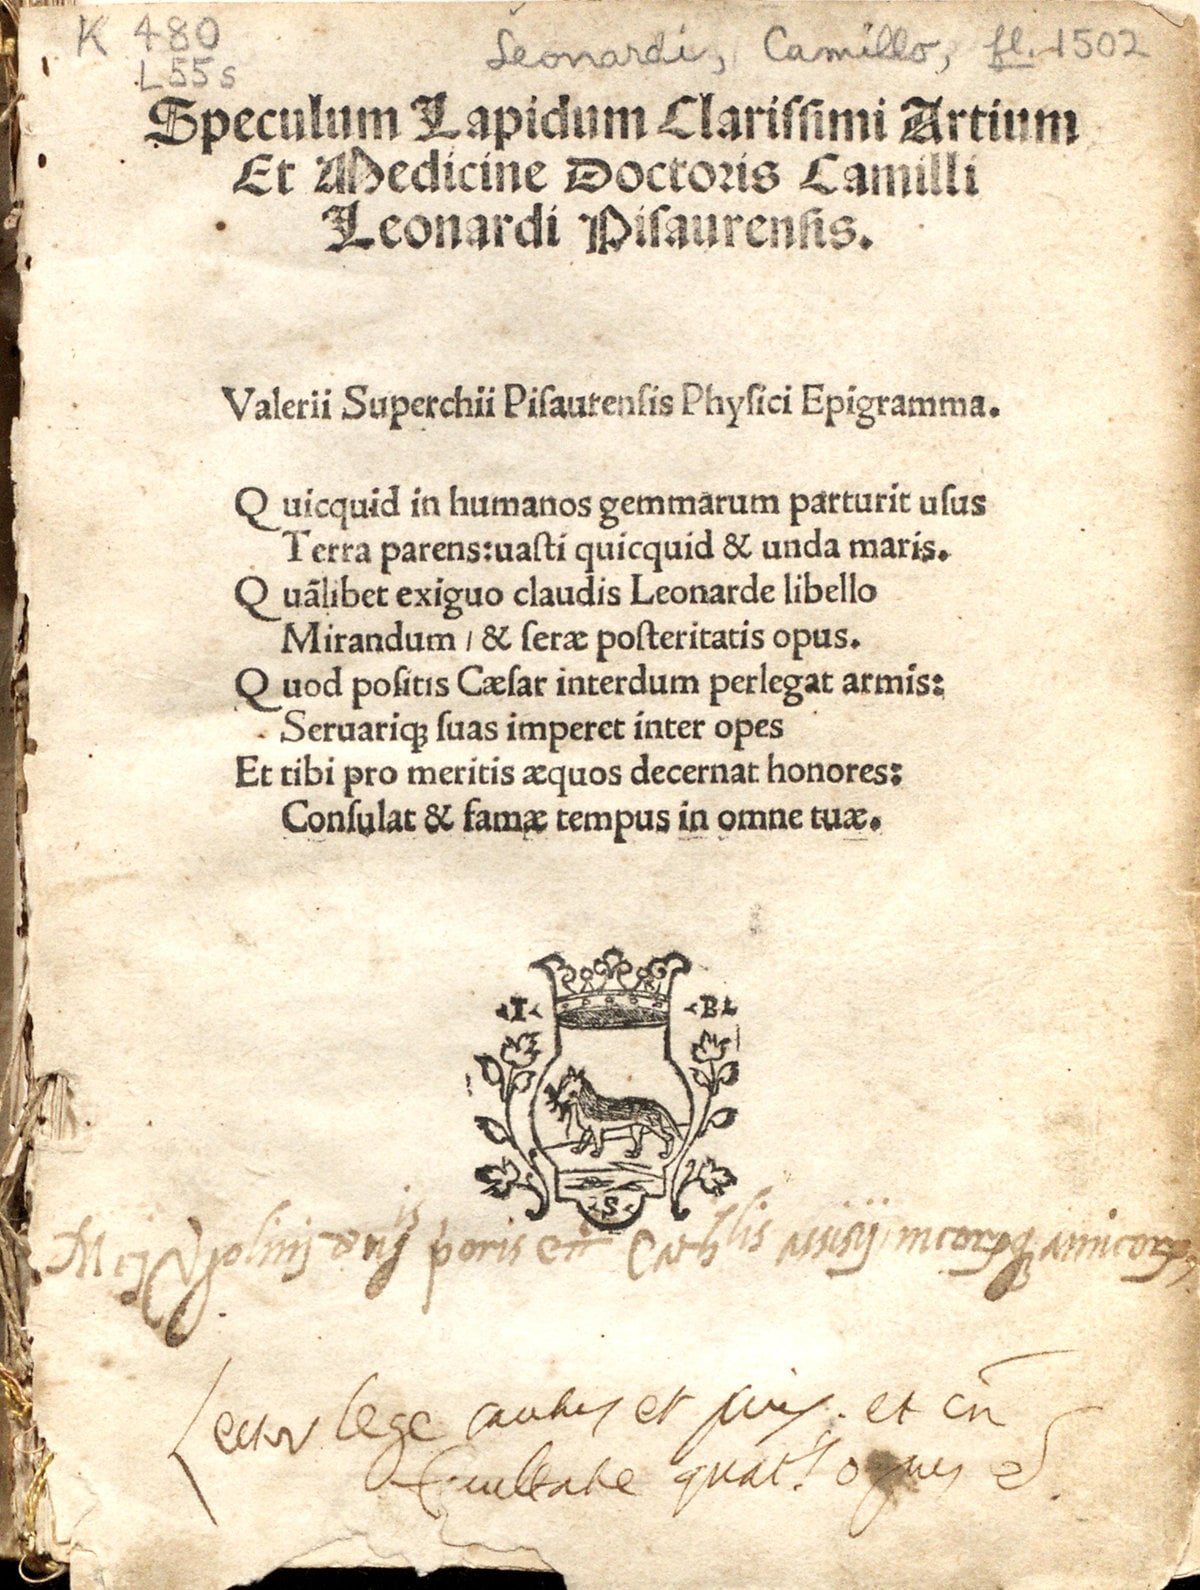 K 480
L55s
Leonardi, Camillo, fl. 1502
Speculum Lapidum Clariſſimi Artium
Et Medicine Doctoris Camilli
Leonardi Piſaurenſis.
Valerii Superchii Piſaurenſis Phyſici Epigramma.
Quicquid in humanos gemmarum parturit uſus
Terra parens:uaſti quicquid & unda maris.
Quãlibet exiguo claudis Leonarde libello
Mirandum / & ſeræ poſteritatis opus.
Quod poſitis Cæſar interdum perlegat armis:
Seruariqꝫ ſuas imperet inter opes
Et tibi pro meritis æquos decernat honores:
Conſulat & famæ tempus in omne tuæ.
I B
S
Lector lege et et